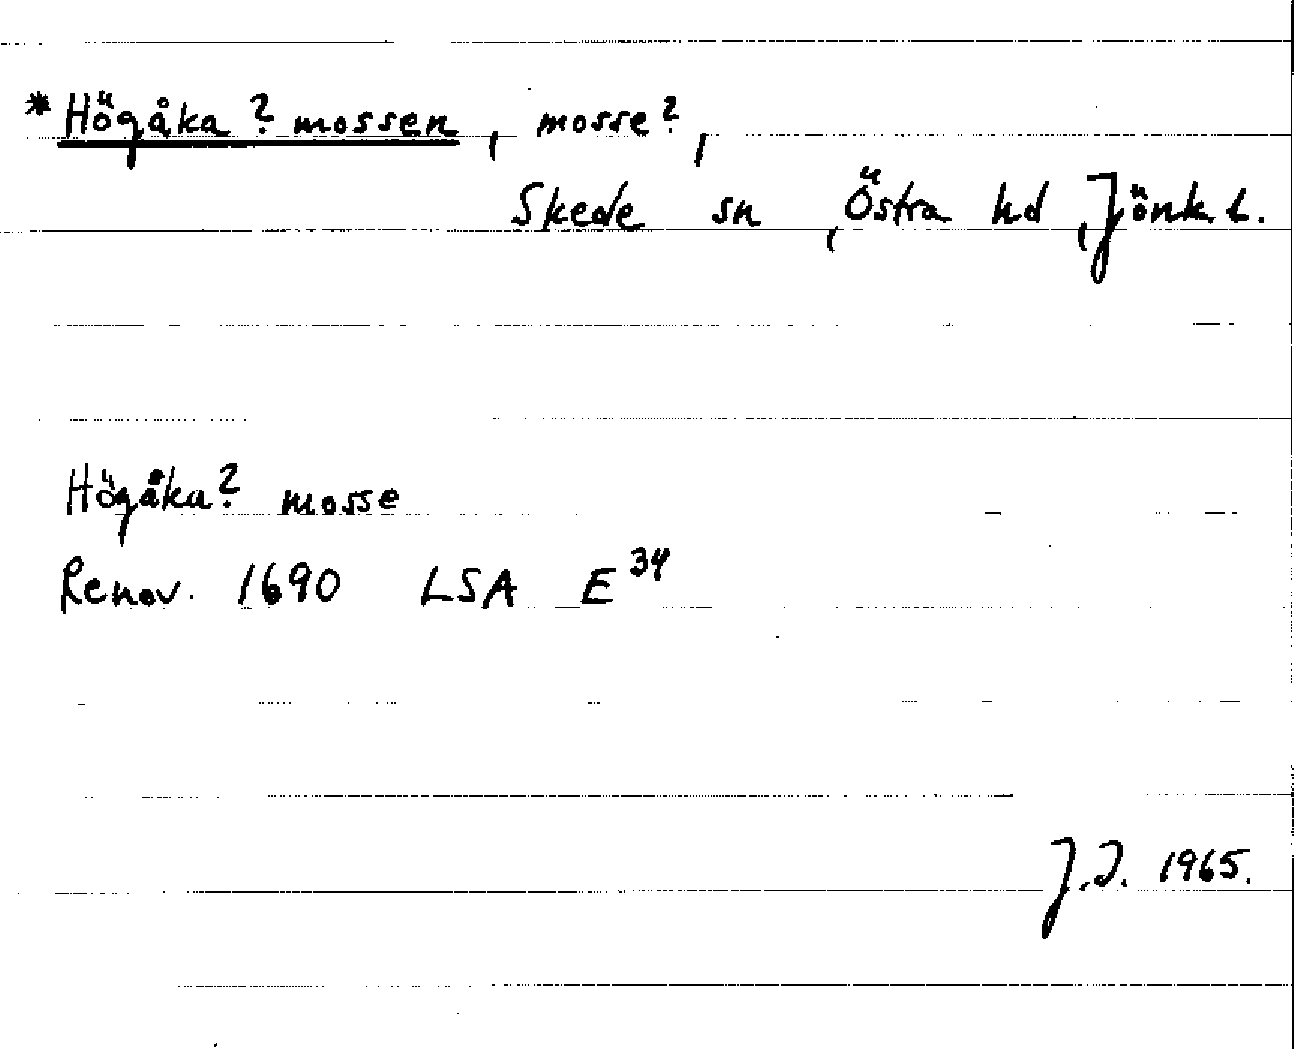 *Högåka? mossen, mosse?,
Skede sn, Östra hd, Jönk. L.
Högåka? mosse
Renov. 1690 LSA E³⁴
J.I. 1965.